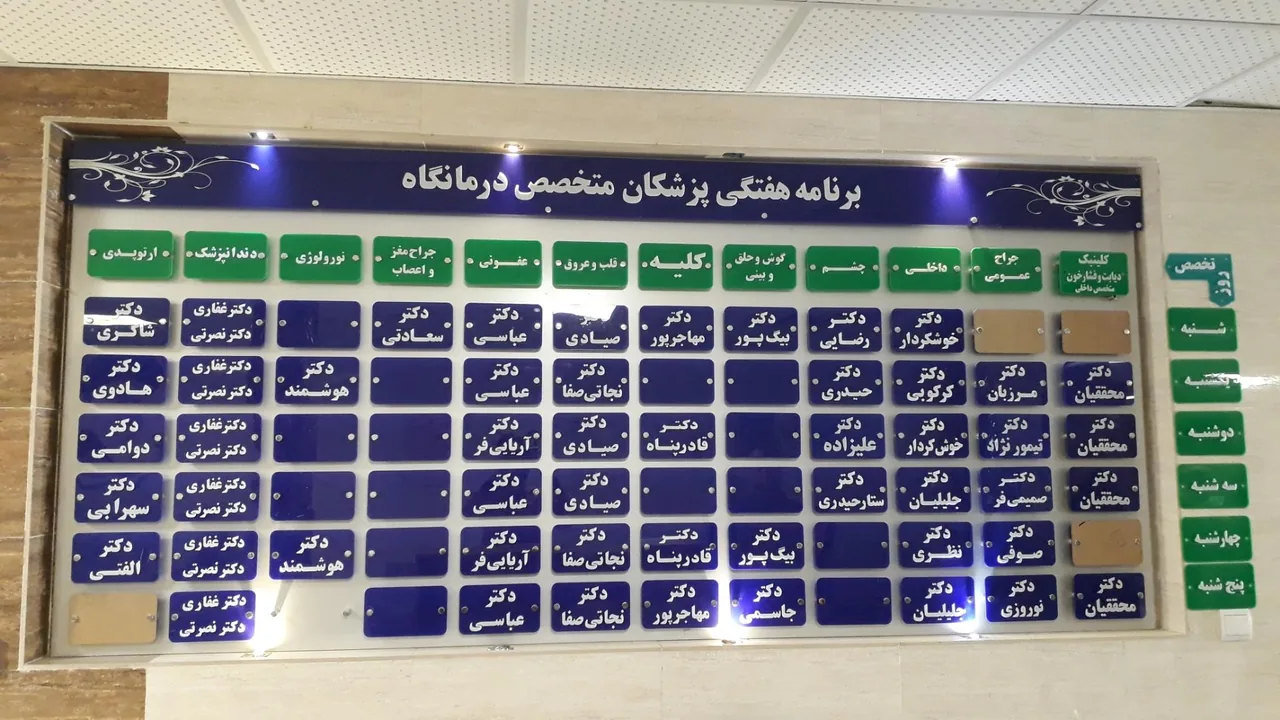 برنامه هفتگی پزشکان متخصص درمانگاه
تخصص
روز
کلینیک
دیابت و فشارخون
متخصص داخلی
جراح
عمومی
داخلی
چشم
گوش و حلق
و بینی
کلیه
قلب و عروق
عفونی
جراح مغز
و اعصاب
نورولوژی
دندانپزشک
ارتوپدی
شنبه
دکتر
خوشکردار
دکتر
رضایی
دکتر
بیگ پور
دکتر
مهاجرپور
صیادی
دکتر
عباسی
دکتر
سعادتی
دکتر غفاری
دکتر نصرتی
دکتر
شاکری
یکشنبه
دکتر
محققیان
دکتر
مرزبان
دکتر
کرکوبی
دکتر
حیدری
دکتر
نجاتی صفا
دکتر
عباسی
دکتر
هوشمند
دکتر غفاری
دکتر نصرتی
دکتر
هادوی
دوشنبه
دکتر
محققیان
دکتر
تیمور نژاد
دکتر
خوش کردار
دکتر
علیزاده
دکتر
قادرپناه
دکتر
صیادی
دکتر
آریایی فر
دکتر غفاری
دکتر نصرتی
دکتر
دوامی
سه شنبه
دکتر
محققیان
دکتر
صمیمی فر
دکتر
جلیلیان
دکتر
ستارحیدری
دکتر
صیادی
دکتر
عباسی
دکتر غفاری
دکتر نصرتی
دکتر
سهرابی
چهارشنبه
دکتر
صوفی
دکتر
نظری
دکتر
بیگ پور
دکتر
قادرپناه
دکتر
نجاتی صفا
دکتر
آریایی فر
دکتر
هوشمند
دکتر غفاری
دکتر نصرتی
دکتر
الفتی
پنج شنبه
دکتر
محققیان
دکتر
نوروزی
دکتر
جلیلیان
دکتر
جاسمی
دکتر
مهاجرپور
دکتر
نجاتی صفا
دکتر
عباسی
دکتر غفاری
دکتر نصرتی